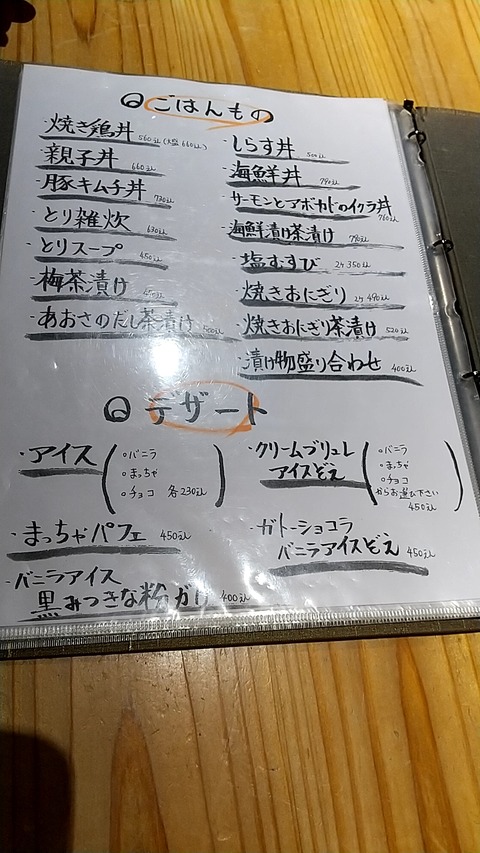 ごはんもの
・焼き鶏丼 560円(大盛660円)
・親子丼 660円
・豚キムチ丼 730円
・とり雑炊 630円
・とりスープ 450円
・梅茶漬け
・あおさのだし茶漬け
・しらす丼 500円
・海鮮丼 790円
・サーモンとアボカドのイクラ丼 760円
・海鮮漬け茶漬け 790円
・塩むすび 2ケ350円
・焼きおにぎり 2ケ490円
・焼きおにぎり茶漬け 520円
・漬け物盛り合わせ 400円
デザート
・アイス
○バニラ
○まっちゃ
○チョコ 各230円
・まっちゃパフェ 450円
・バニラアイス
黒みつきな粉がけ 400円
・クリームブリュレ
アイスどえ
○バニラ
○まっちゃ
○チョコ
からお選び下さい
450円
・ガトーショコラ
バニラアイスどえ 450円